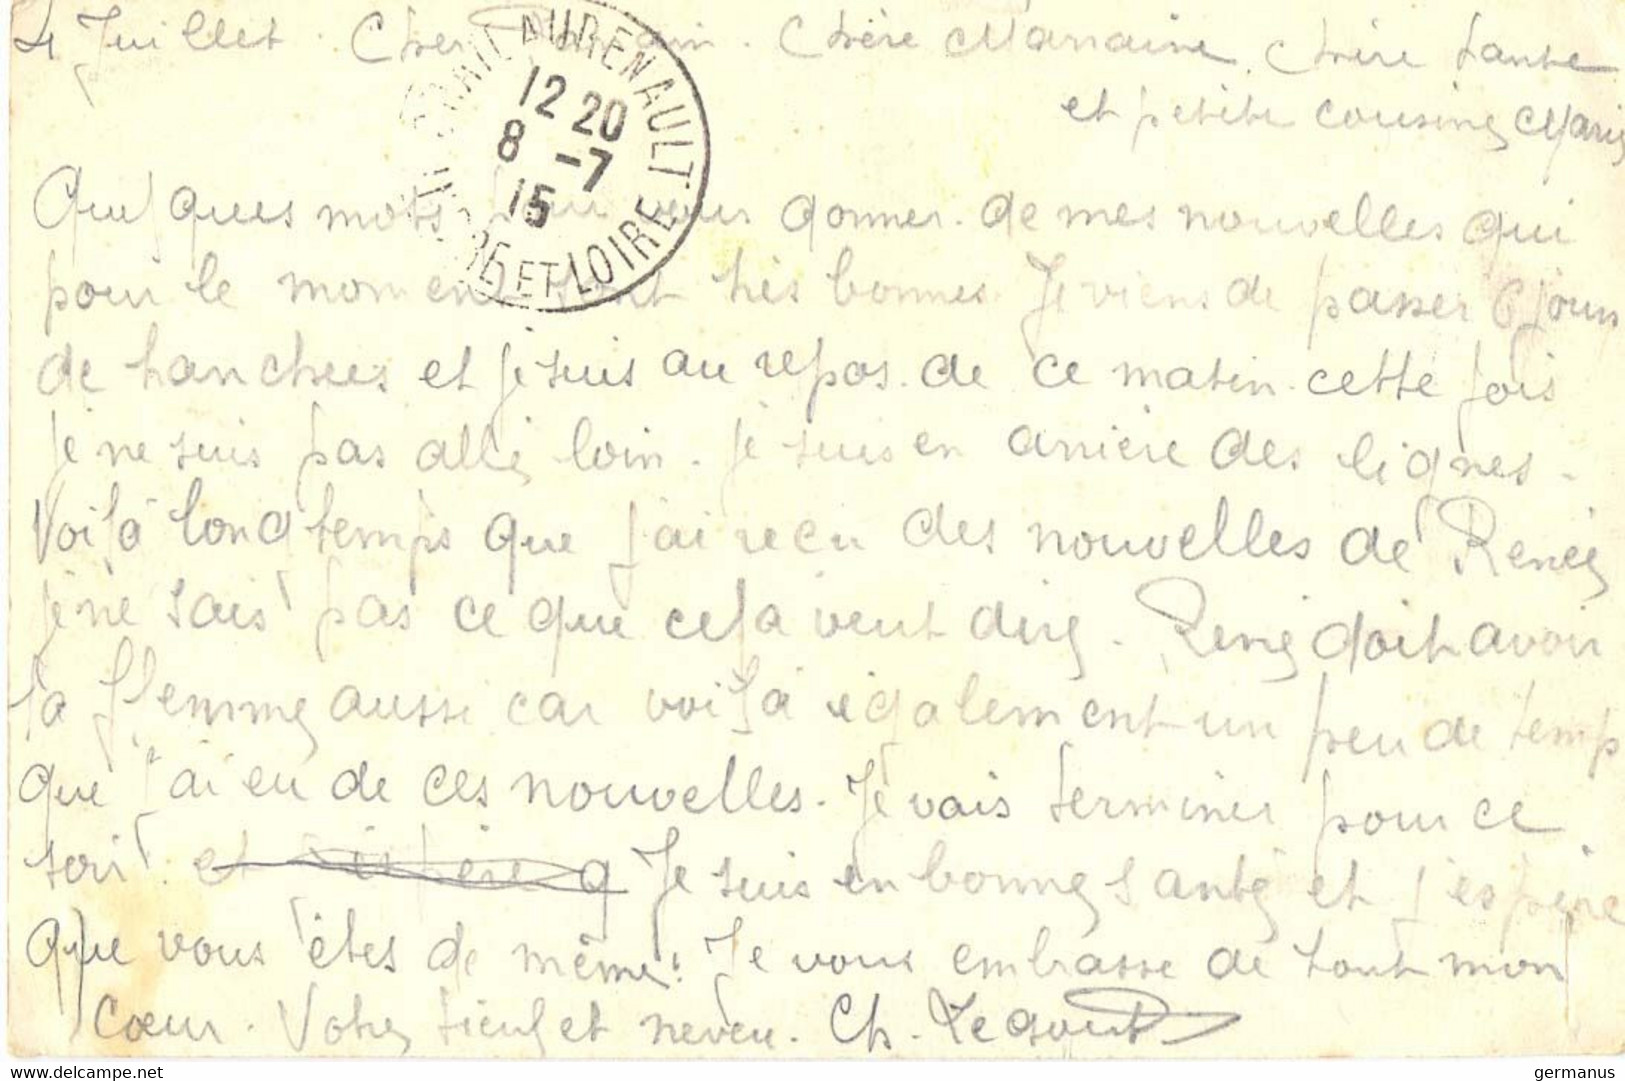 4 Juillet. Cher Parrain. Chère Marraine Chère tante
et petite cousine Marie
Quelques mots pour vous donner de mes nouvelles qui
pour le moment sont très bonnes. Je viens de passer 6 jours
de tranchees et je suis au repos de ce matin. cette fois
je ne suis pas allé loin. Je suis en arrière des lignes.
Voilà longtemps que j'ai recu des nouvelles de Renée
je ne sais pas ce que cela veut dire. René doit avoir
la flemme aussi car voilà également un peu de temp
que j'ai eu de ces nouvelles. Je vais terminer pour ce
soir. et j'espère q Je suis en bonne santé et j'espère
que vous êtes de même. Je vous embrasse de tout mon
cœur. Votre fieul et neveu. Ch. Legout
CHATEAURENAULT
12 20
8 -7
15
INDRE ET LOIRE
germanus
delcampe.net